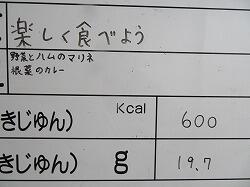 楽しく食べよう
野菜とハムのマリネ
根菜のカレー
Kcal
きじゅん) 600
きじゅん) g 19.7